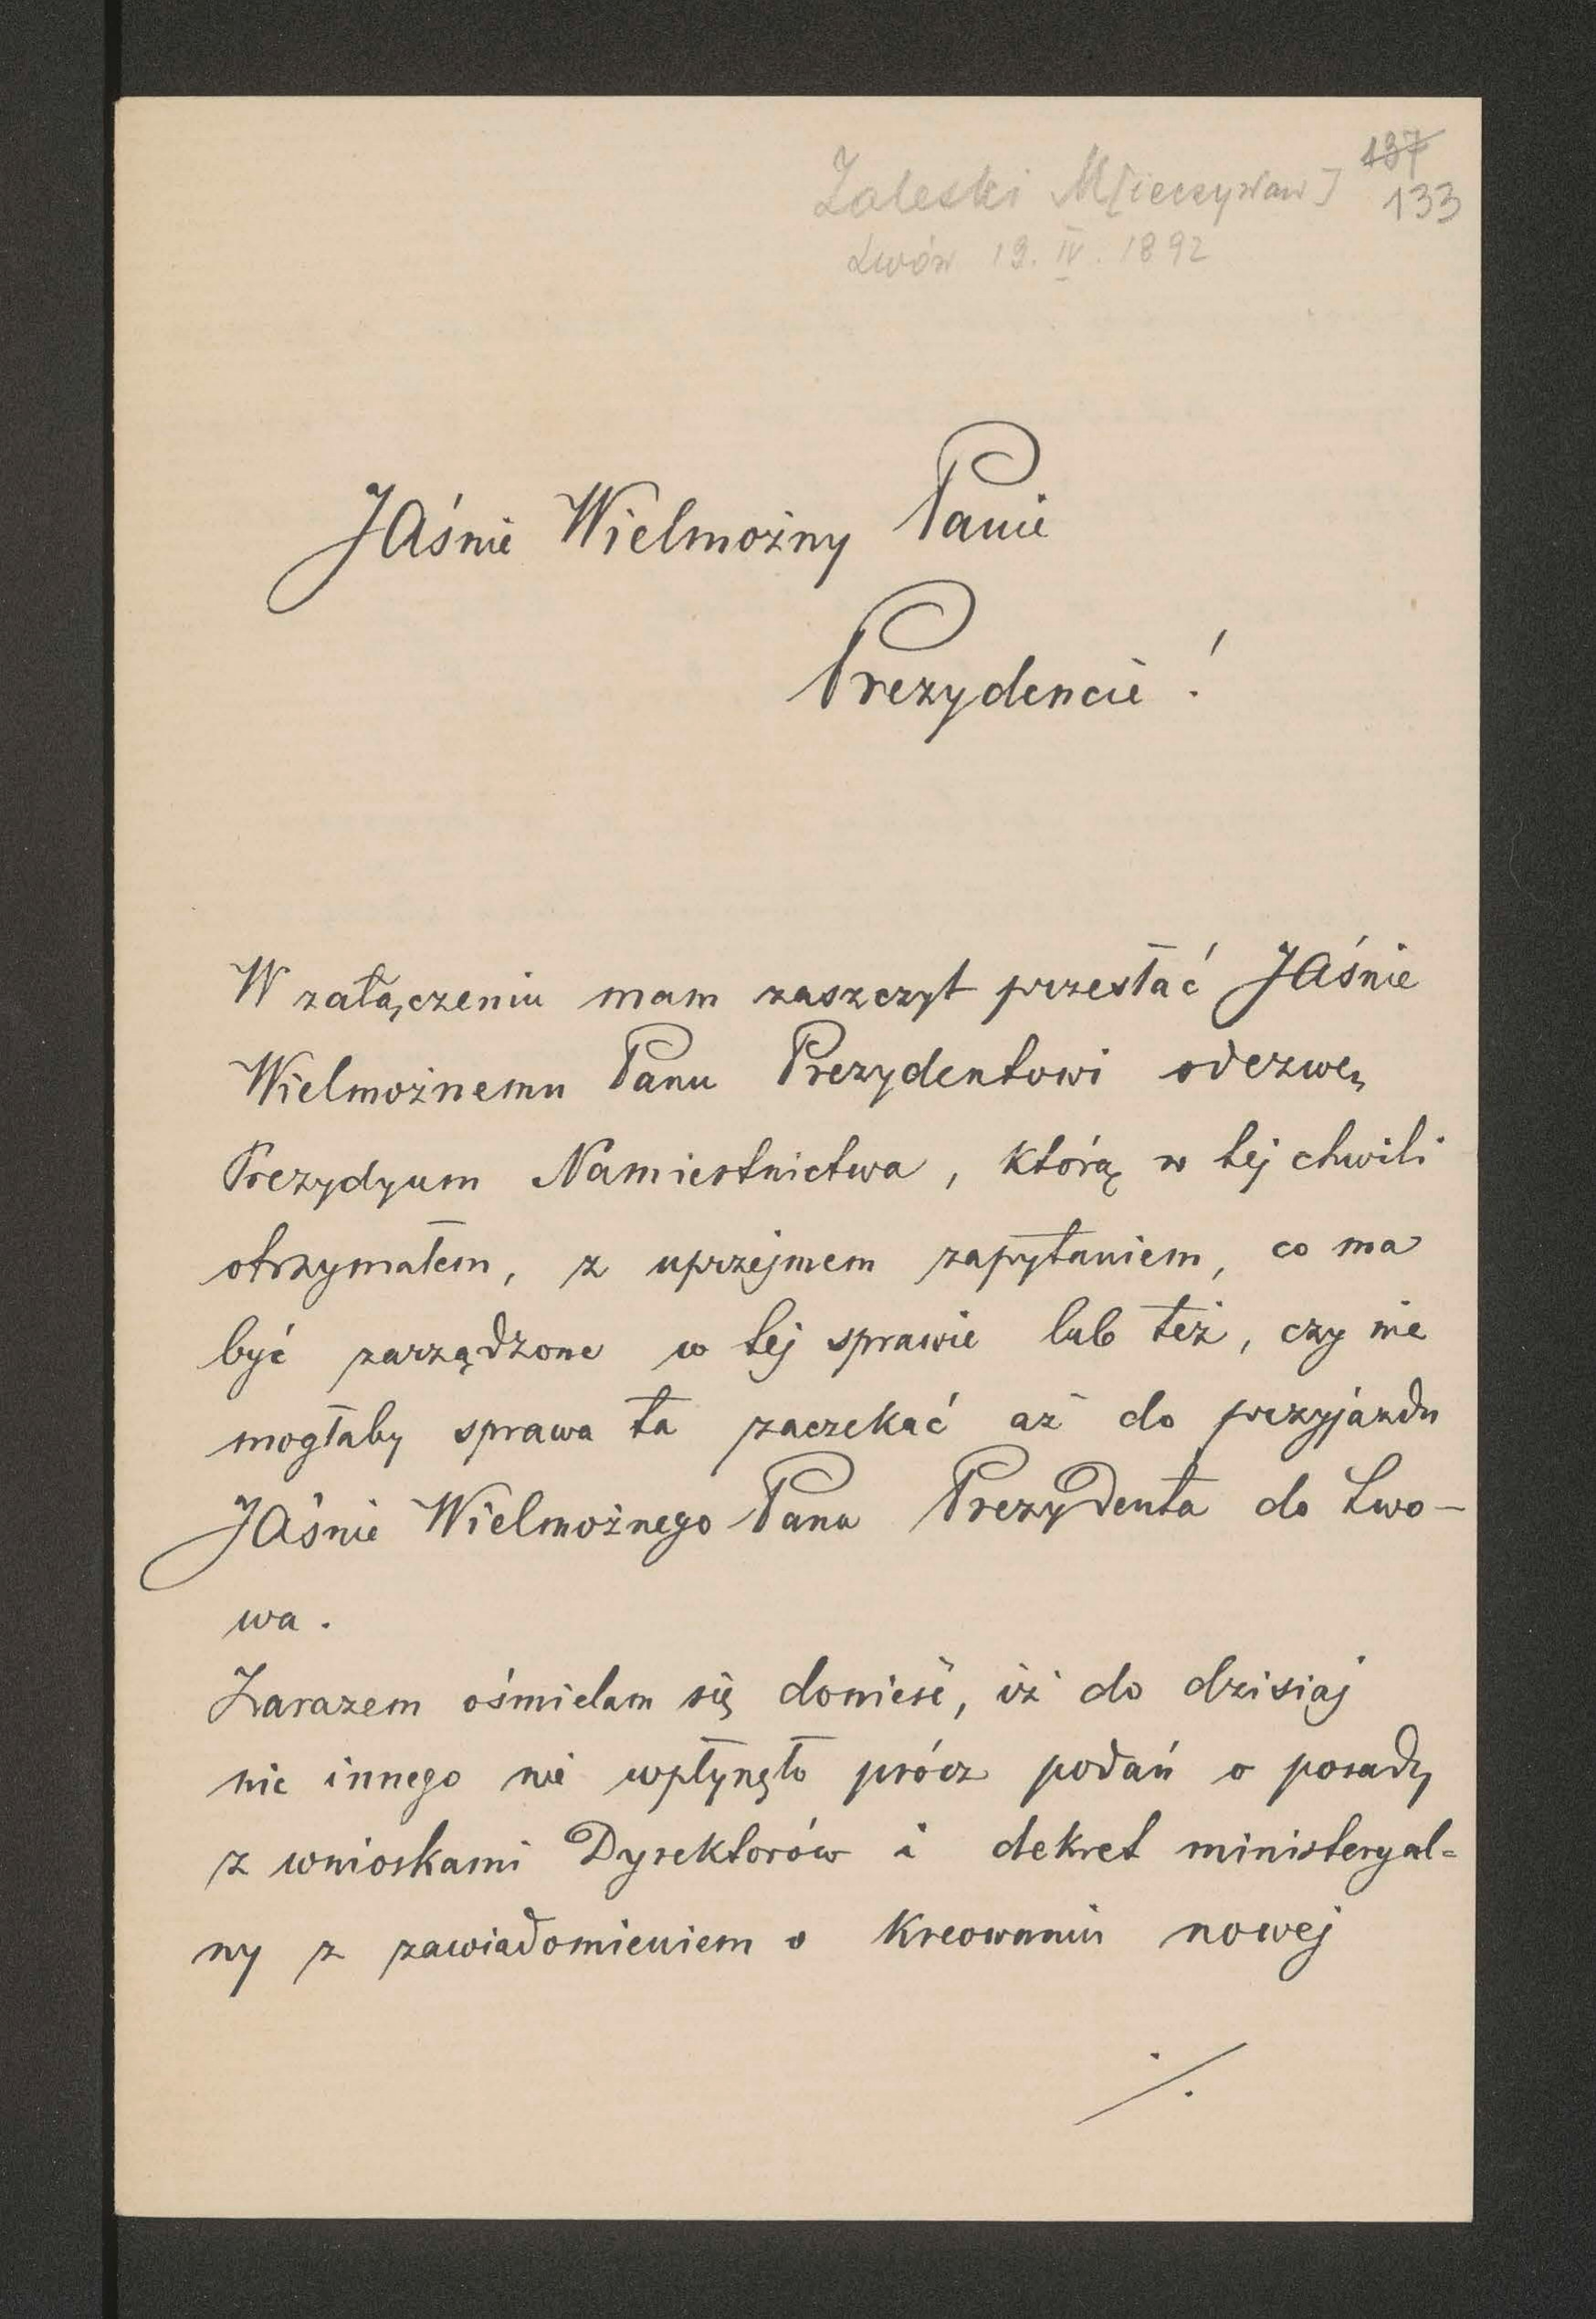 197
Zaleski M[ieczysław] 133
Lwów 19. IV. 1892
JAśnie Wielmożny Panie
Prezydencie !
W załączeniu mam zaszczyt przesłać JAśnie
Wielmożnemu Panu Prezydentowi odezwę
Prezydyum Namiestnictwa, którą w tej chwili
otrzymałem, z uprzejmem zapytaniem, co ma
być zarządzone w tej sprawie lub też, czy nie
mogłaby sprawa ta zaczekać aż do przyjazdu
JAśnie Wielmożnego Pana Prezydenta do Lwo-
wa.
Zarazem ośmielam się donieść, iż do dzisiaj
nic innego nie wpłynęło prócz podań o posady
z wnioskami Dyrektorów i dekret ministeryal=
ny z zawiadomieniem o kreowaniu nowej
./.